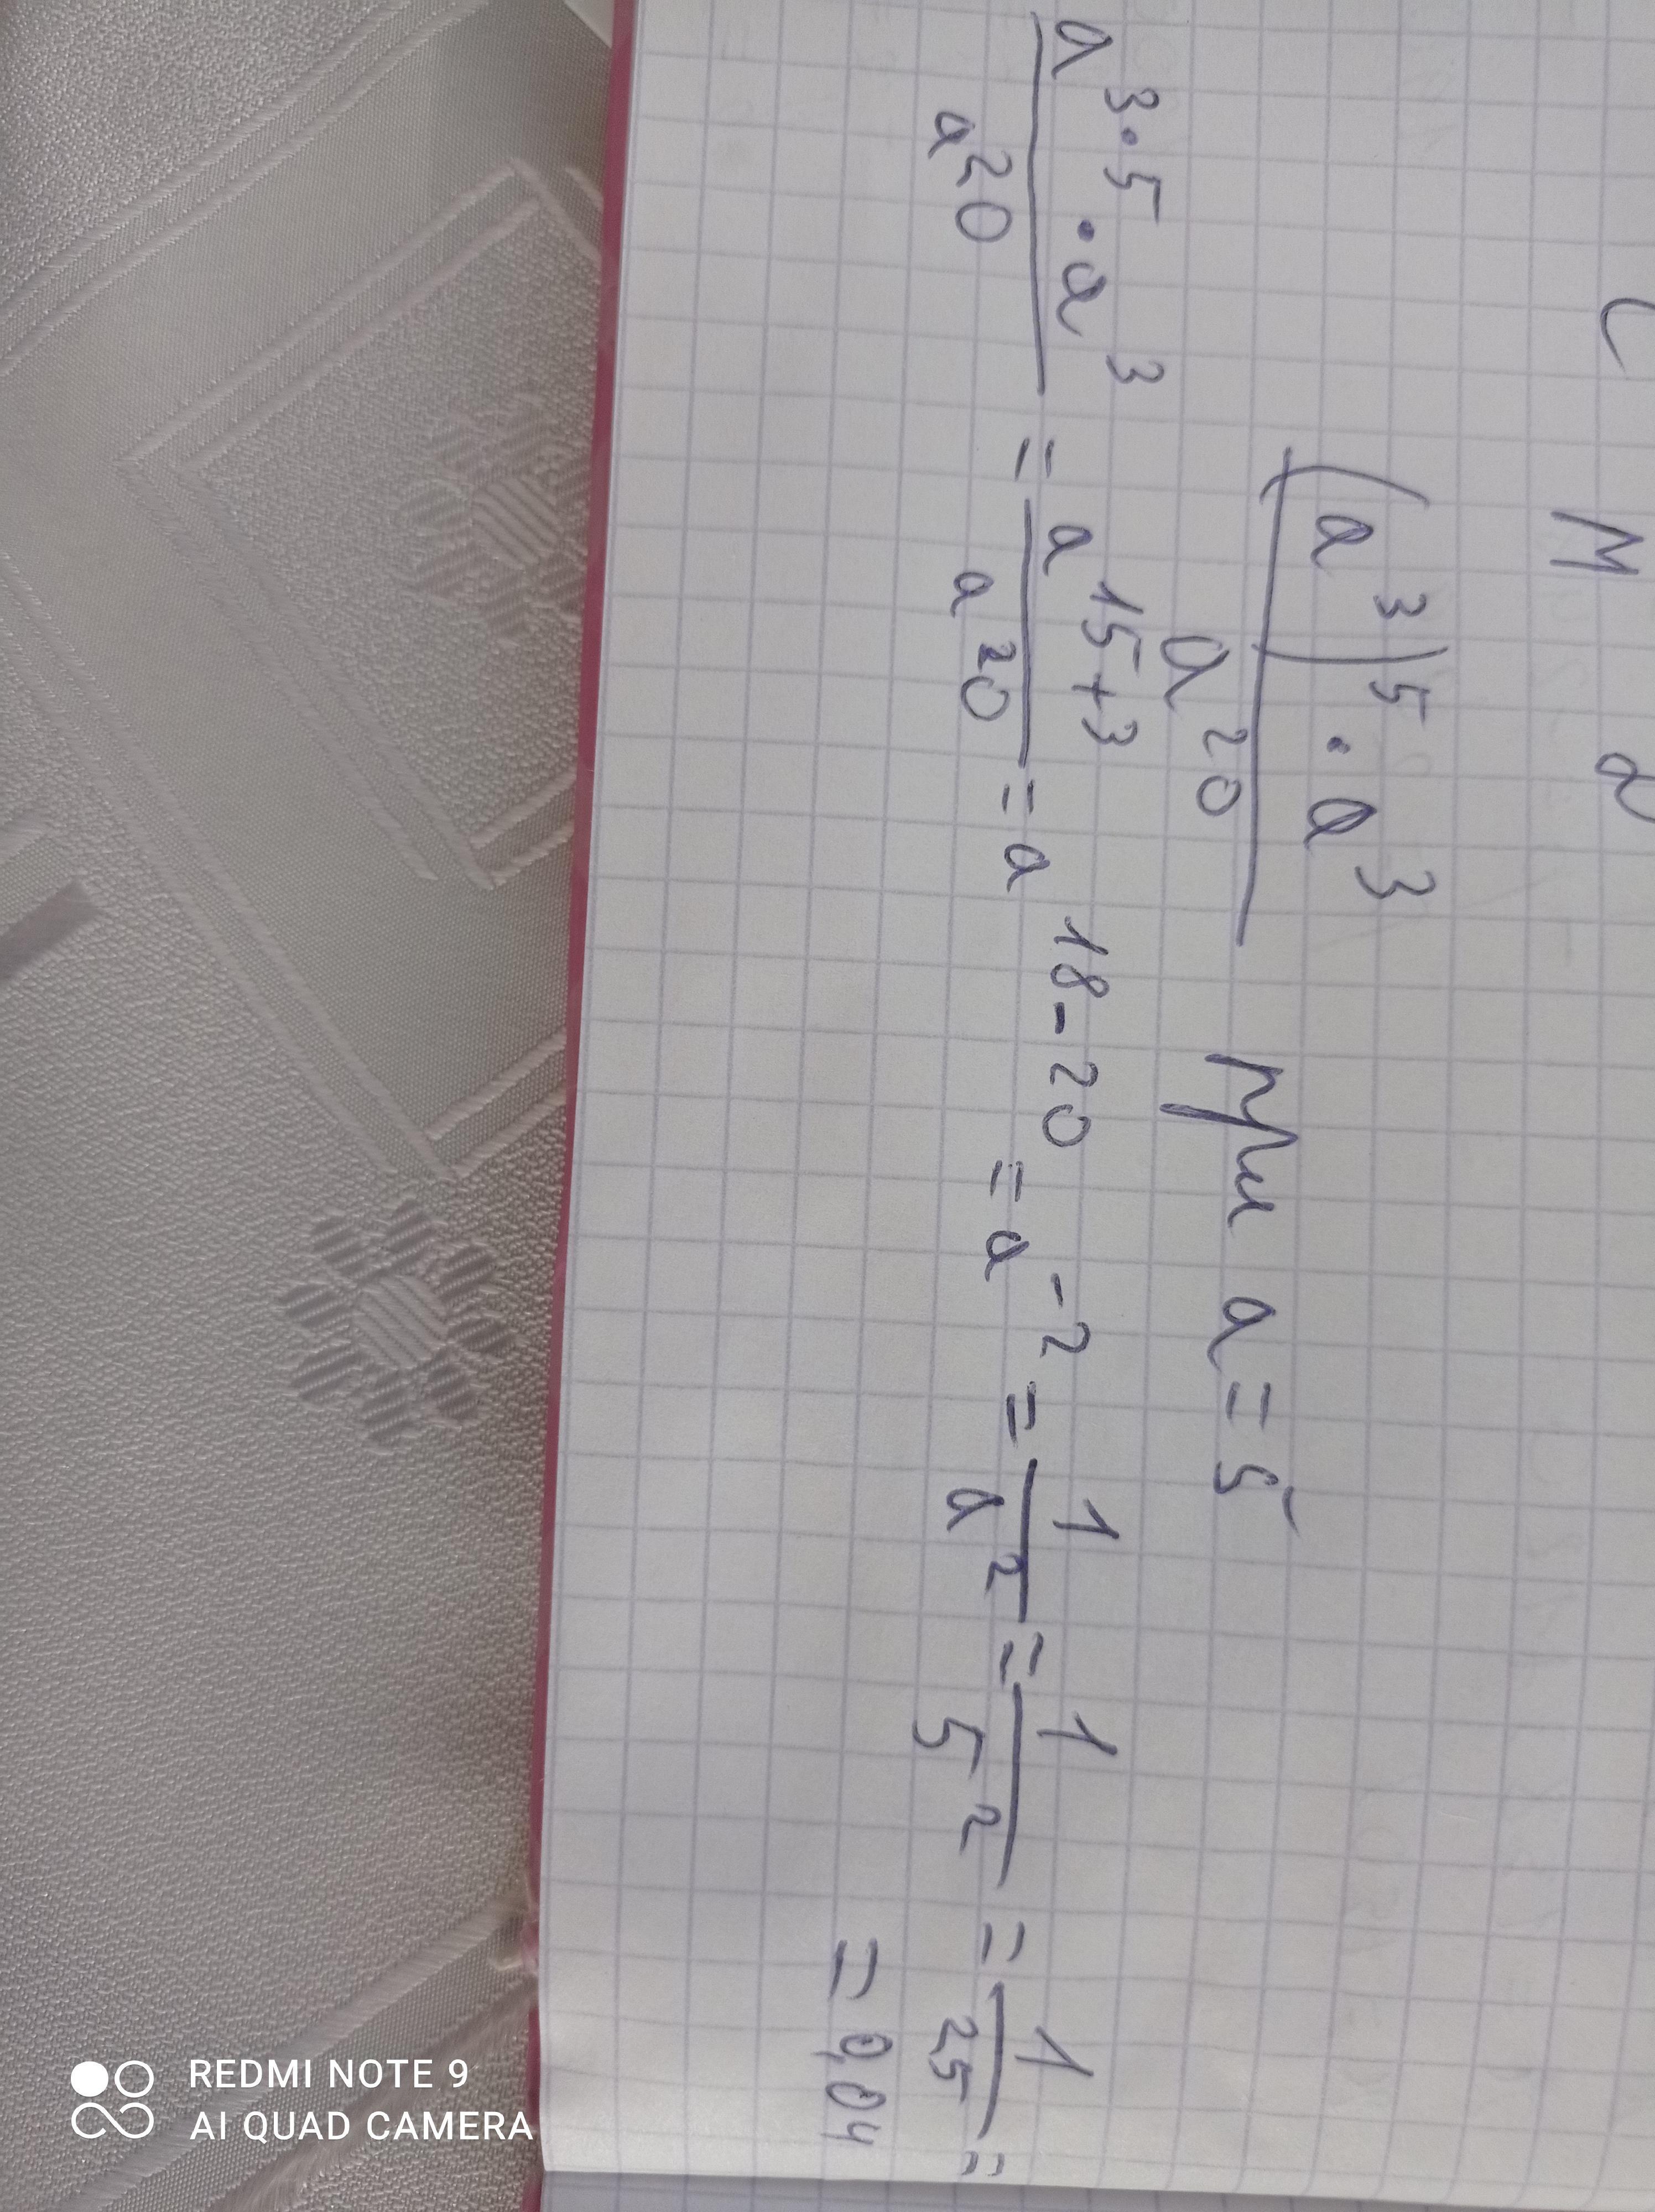 (a³)⁵ · a³ / a²⁰ при a = 5
a³·⁵ · a³ / a²⁰ = a¹⁵⁺³ / a²⁰ = a¹⁸⁻²⁰ = a⁻² = 1 / a² = 1 / 5² = 1 / 25 =
= 0,04
REDMI NOTE 9
AI QUAD CAMERA